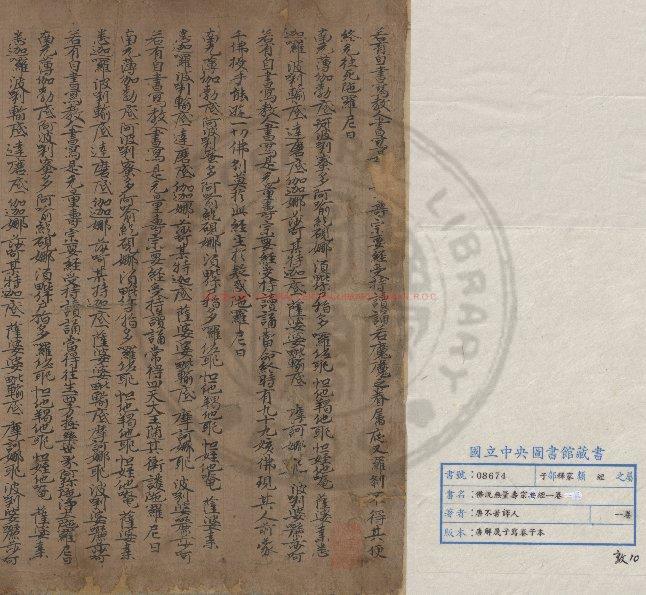 若有自書寫教人書寫 壽宗要經受持讀誦若魔魔之眷屬夜叉羅剎不得其便
終無枉死陁羅尼曰
南无薄伽勃底 阿波唎蜜多 阿喻紇硯娜 須毗你悉指多 羅佐耶 怛他羯他耶 怛姪他唵 薩婆桑悉
迦囉 波唎輸底 達磨底 伽迦娜 莎訶其持迦底 薩婆婆毗輸底 摩訶娜耶 波唎婆麗莎訶
若有自書寫教人書寫是无量壽宗要經受持讀誦當命終時有九十九姟佛現其人前蒙
千佛授手能遊一切佛剎莫於此經生於疑惑陁羅尼曰
南无薄伽勃底 阿波唎蜜多 阿喻紇硯娜 須毗你悉指多 羅佐耶 怛他羯他耶 怛姪他唵 薩婆桑
悉迦囉 波唎輸底 達磨底 伽迦娜 莎訶其持迦底 薩婆婆毗輸底 摩訶娜耶 波唎婆麗莎訶
若有自書寫教人書寫是无量壽宗要經受持讀誦常得四天大王隨其衛護陁羅尼曰
南无薄伽勃底 阿波唎蜜多 阿喻紇硯娜 須毗你悉指多 羅佐耶 怛他羯他耶 怛姪他唵 薩婆桑
悉迦囉 波唎輸底 達磨底 伽迦娜 莎訶其持迦底 薩婆婆毗輸底 摩訶娜耶 波唎婆麗莎訶
若有自書寫教人書寫是无量壽宗要經受持讀誦當得往生西方極樂世界阿彌陁淨土陁羅尼曰
南无薄伽勃底 阿波唎蜜多 阿喻紇硯娜 須毗你悉指多 羅佐耶 怛他羯他耶 怛姪他唵 薩婆桑
悉迦囉 波唎輸底 達磨底 伽迦娜 莎訶其持迦底 薩婆婆毗輸底 摩訶娜耶 波唎婆麗莎訶
國立中央圖書館藏書
書號：08674 子部釋家類 經 之屬
書名：佛說無量壽宗要經一卷
著者：唐不著譯人 一卷
版本：唐解晟子寫卷子本
敦10